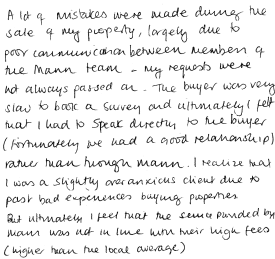 A lot of mistakes were made during the
sale of my property, largely due to
poor communication between members of
the Mann team - my requests were
not always passed on. The buyer was very
slow to book a survey and ultimately I felt
that I had to speak directly to the buyer
(fortunately we had a good relationship)
rather than through mann. I realize that
I was a slightly overanxious client due to
past bad experiences buying properties
But ultimately I feel that the service provided by
mann was not in line with their high fees
(higher than the local average)